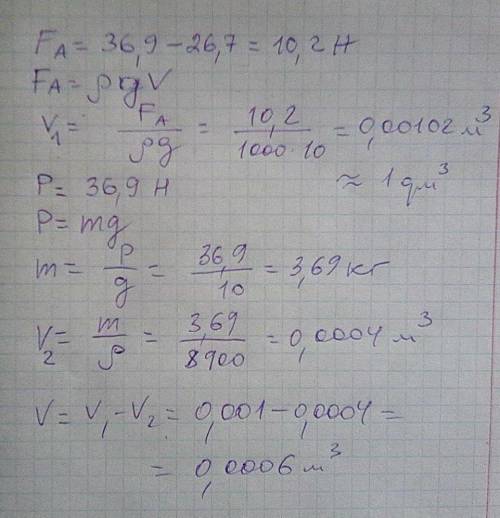 F_A = 36,9 − 26,7 = 10,2 Н
F_A = ρжgV
V₁ = F_A / ρg = 10,2 / 1000·10 = 0,00102 м³
P = 36,9 Н ≈ 1 дм³
P = mg
m = P / g = 36,9 / 10 = 3,69 кг
V₂ = m / ρ = 3,69 / 8900 = 0,0004 м³
V = V₁ − V₂ = 0,001 − 0,0004 =
= 0,0006 м³